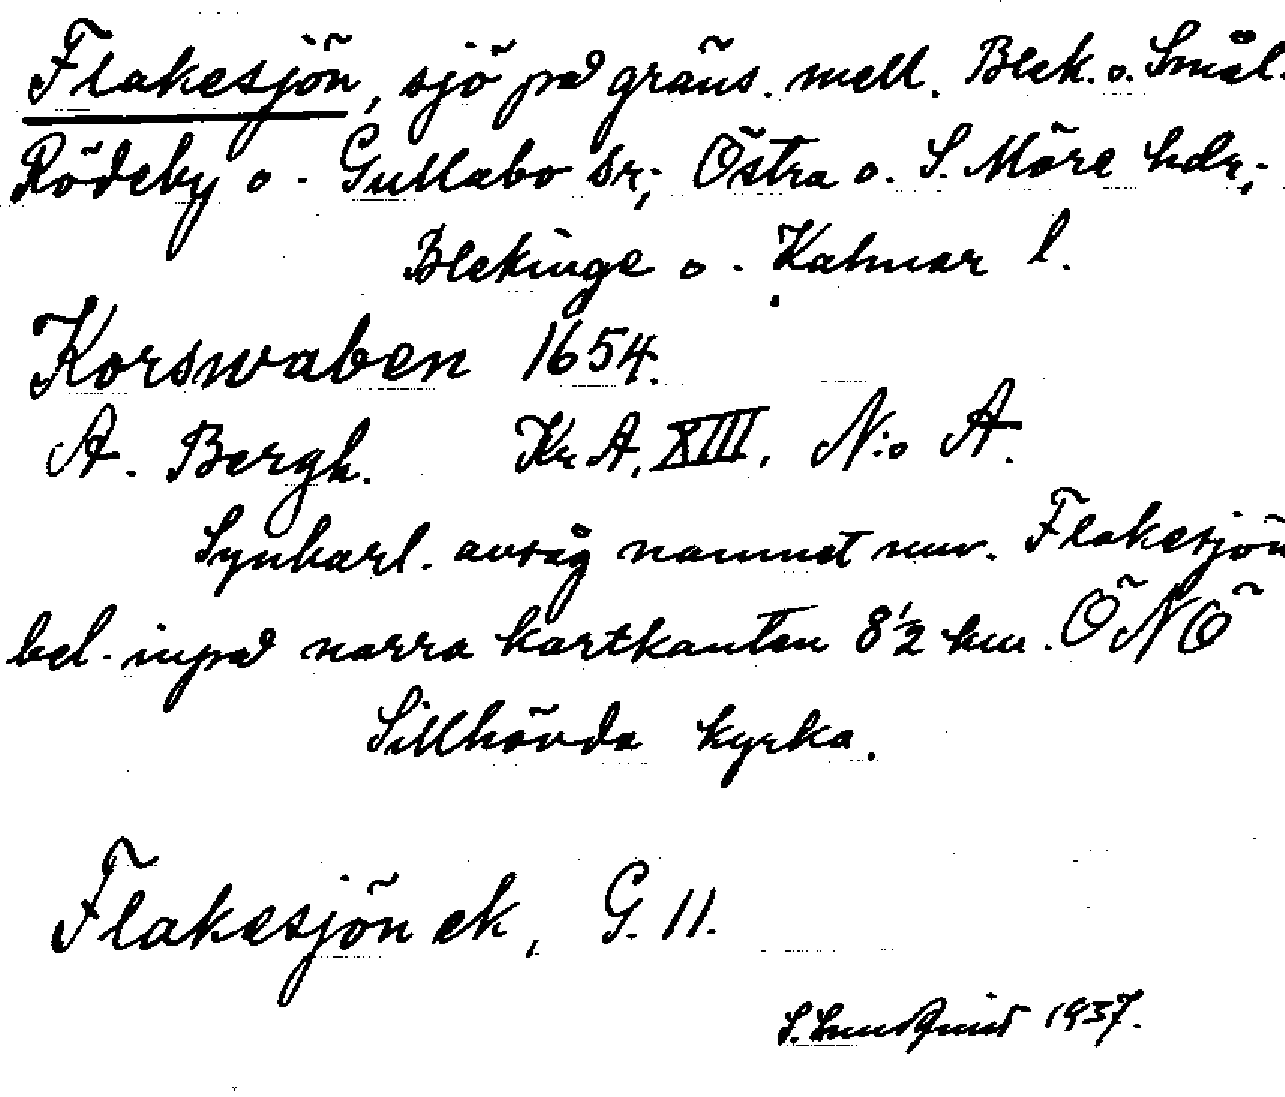 Flakesjön, sjö på gräns. mell. Blek. o. Smål.
Rödeby o. Gullabo sr; Östra o. S. Möre hdr;
Blekinge o. Kalmar l.
Korswaben 1654.
A. Bergh. Kr A. XIII. N:o A.
Synbarl. avsåg namnet nuv. Flakesjön
bel. inpå norra kartkanten 8 1/2 km. ÖNÖ
Sillhövda kyrka.
Flakesjön ek, G. 11.
1937.